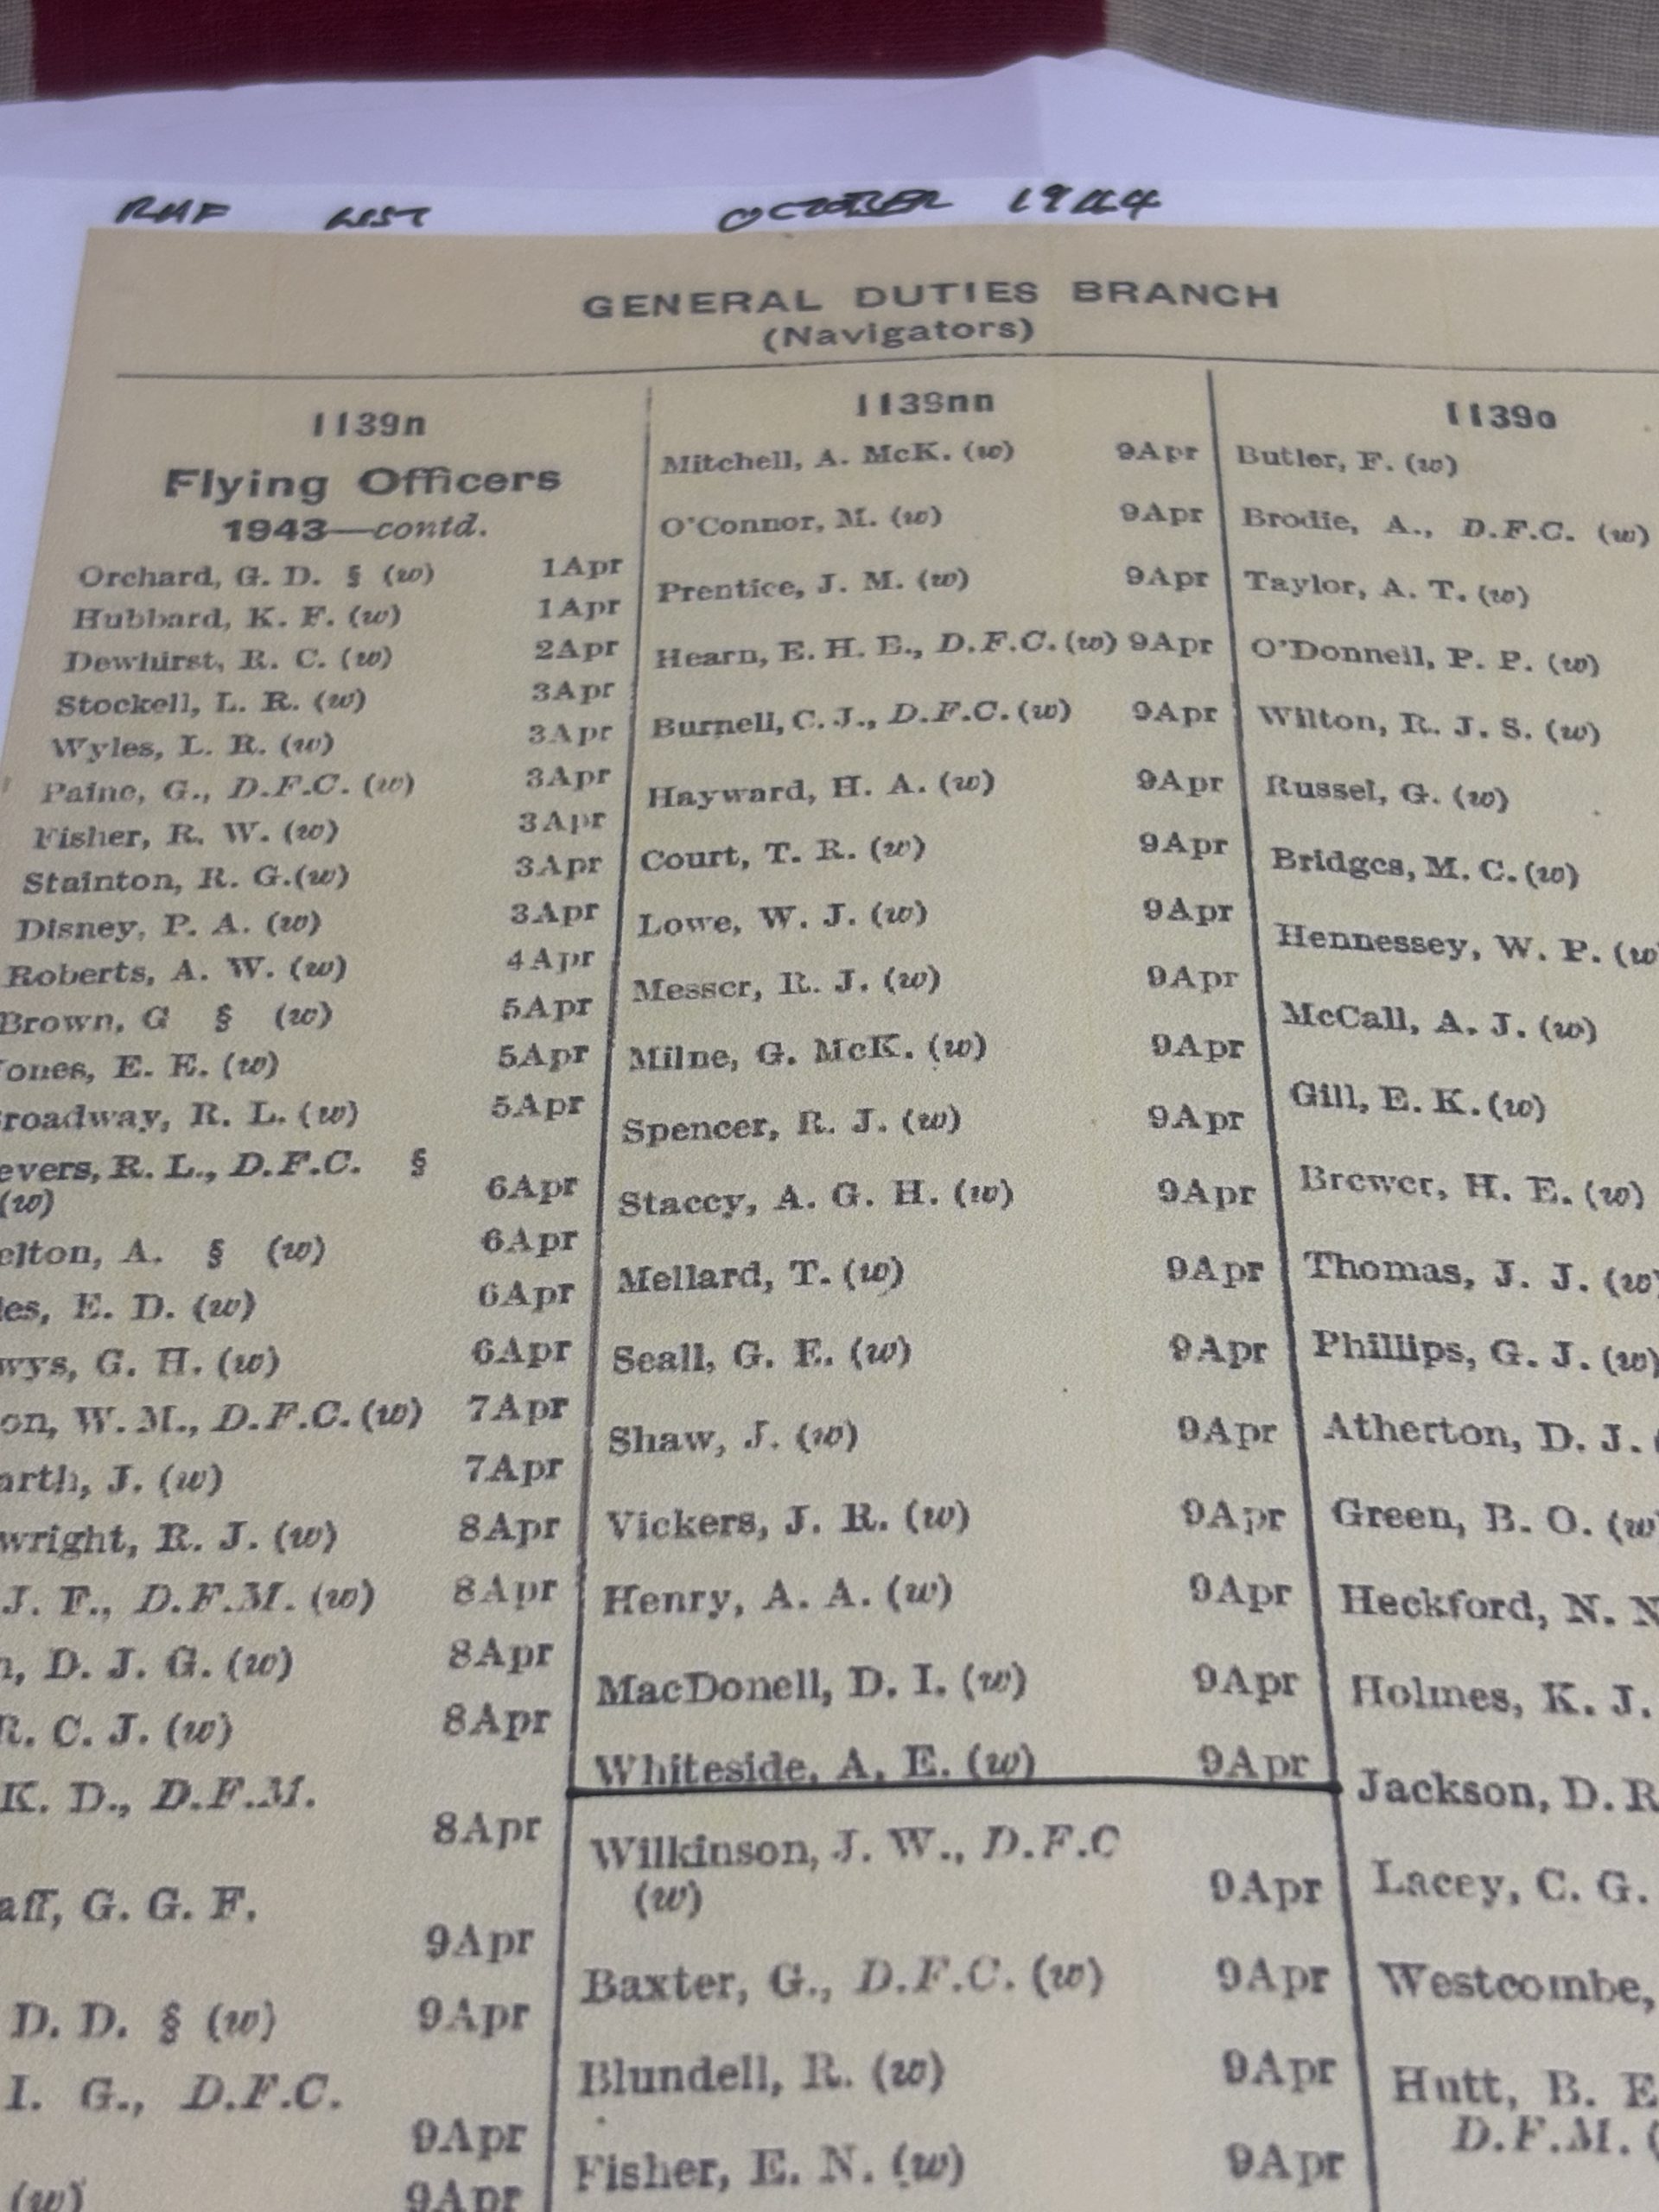 RAF LIST OCTOBER 1944
GENERAL DUTIES BRANCH
(Navigators)
1139n
Flying Officers
1943—contd.
Orchard, G. D. § (w) 1Apr
Hubbard, K. F. (w) 1Apr
Dewhirst, R. C. (w) 2Apr
Stockell, L. R. (w) 3Apr
Wyles, L. R. (w) 3Apr
Paine, G., D.F.C. (w) 3Apr
Fisher, R. W. (w) 3Apr
Stainton, R. G.(w) 3Apr
Disney, P. A. (w) 3Apr
Roberts, A. W. (w) 4Apr
Brown, G § (w) 5Apr
ones, E. E. (w) 5Apr
roadway, R. L. (w) 5Apr
evers, R. L., D.F.C. §
(w) 6Apr
elton, A. § (w) 6Apr
les, E. D. (w) 6Apr
wys, G. H. (w) 6Apr
on, W. M., D.F.C. (w) 7Apr
arth, J. (w) 7Apr
wright, R. J. (w) 8Apr
J. F., D.F.M. (w) 8Apr
n, D. J. G. (w) 8Apr
R. C. J. (w) 8Apr
K. D., D.F.M.
8Apr
aff, G. G. F.
9Apr
D. D. § (w) 9Apr
I. G., D.F.C.
9Apr
(w) 9Apr
1139nn
Mitchell, A. McK. (w) 9Apr
O'Connor, M. (w) 9Apr
Prentice, J. M. (w) 9Apr
Hearn, E. H. E., D.F.C. (w) 9Apr
Burnell, C. J., D.F.C. (w) 9Apr
Hayward, H. A. (w) 9Apr
Court, T. R. (w) 9Apr
Lowe, W. J. (w) 9Apr
Messer, R. J. (w) 9Apr
Milne, G. McK. (w) 9Apr
Spencer, R. J. (w) 9Apr
Stacey, A. G. H. (w) 9Apr
Mellard, T. (w) 9Apr
Seall, G. E. (w) 9Apr
Shaw, J. (w) 9Apr
Vickers, J. R. (w) 9Apr
Henry, A. A. (w) 9Apr
MacDonell, D. I. (w) 9Apr
Whiteside, A. E. (w) 9Apr
Wilkinson, J. W., D.F.C
(w) 9Apr
Baxter, G., D.F.C. (w) 9Apr
Blundell, R. (w) 9Apr
Fisher, E. N. (w) 9Apr
1139o
Butler, F. (w)
Brodie, A., D.F.C. (w)
Taylor, A. T. (w)
O'Donnell, P. P. (w)
Wilton, R. J. S. (w)
Russel, G. (w)
Bridges, M. C. (w)
Hennessey, W. P. (w
McCall, A. J. (w)
Gill, E. K. (w)
Brewer, H. E. (w)
Thomas, J. J. (w)
Phillips, G. J. (w)
Atherton, D. J. (
Green, B. O. (w
Heckford, N. N
Holmes, K. J.
Jackson, D. R
Lacey, C. G.
Westcombe,
Hutt, B. E
D.F.M. (